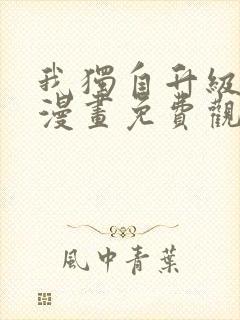 我獨自升級
漫畫免費觀
風中青葉